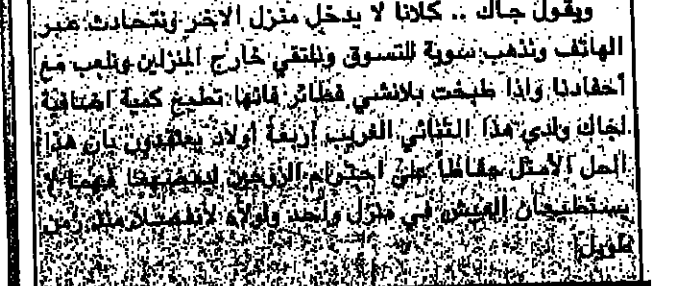 ويقول جاك .. كلانا لا يدخل منزل الاخر ونتحادث عبر
الهاتف ونذهب سوية للتسوق ونلتقي خارج المنزلين ونلعب مع
أحفادنا واذا طبخت بلانشي فطائر فانها تطبخ كمية اضافية
لجاك ولدى هذا الثنائي الغريب أربعة أولاد يعتقدون بان هذا
الحل الأمثل حفاظاً على احترام الزوجين لبعضهما فهما لا
يستطيعان العيش في منزل واحد ولولاه لانفصلا منذ زمن
طويل